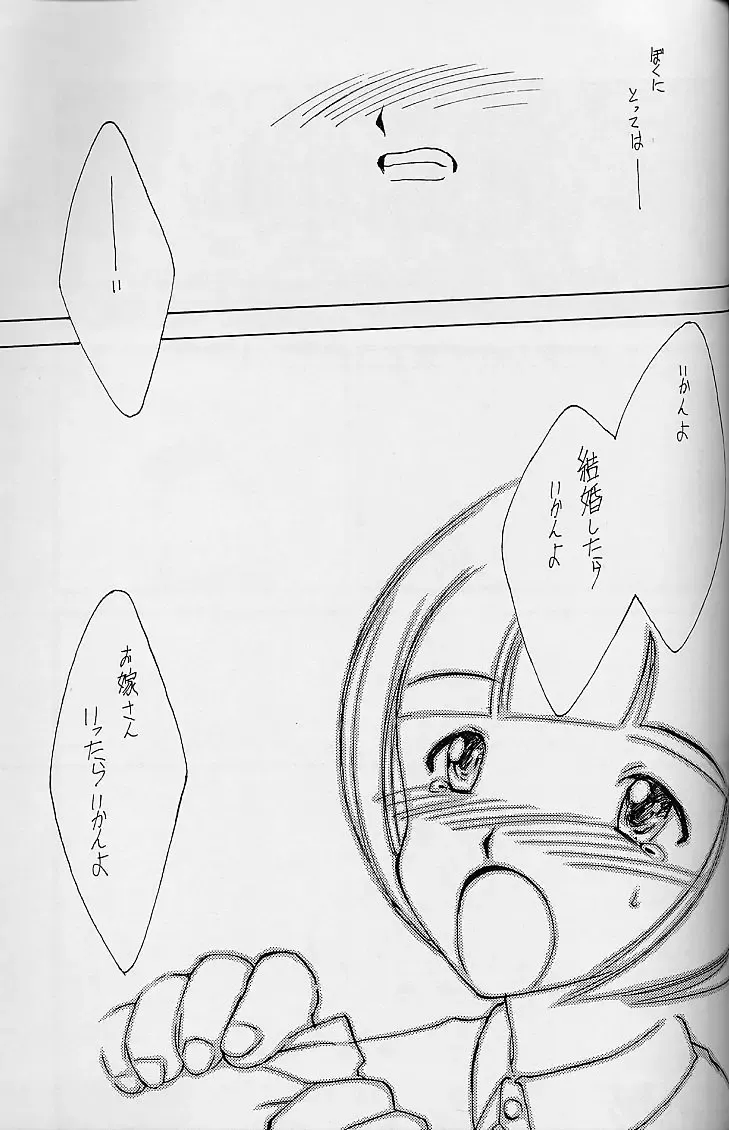 ぼくに
とっては―
―い
いかんよ
結婚したら
いかんよ
お嫁さん
いったらいかんよ